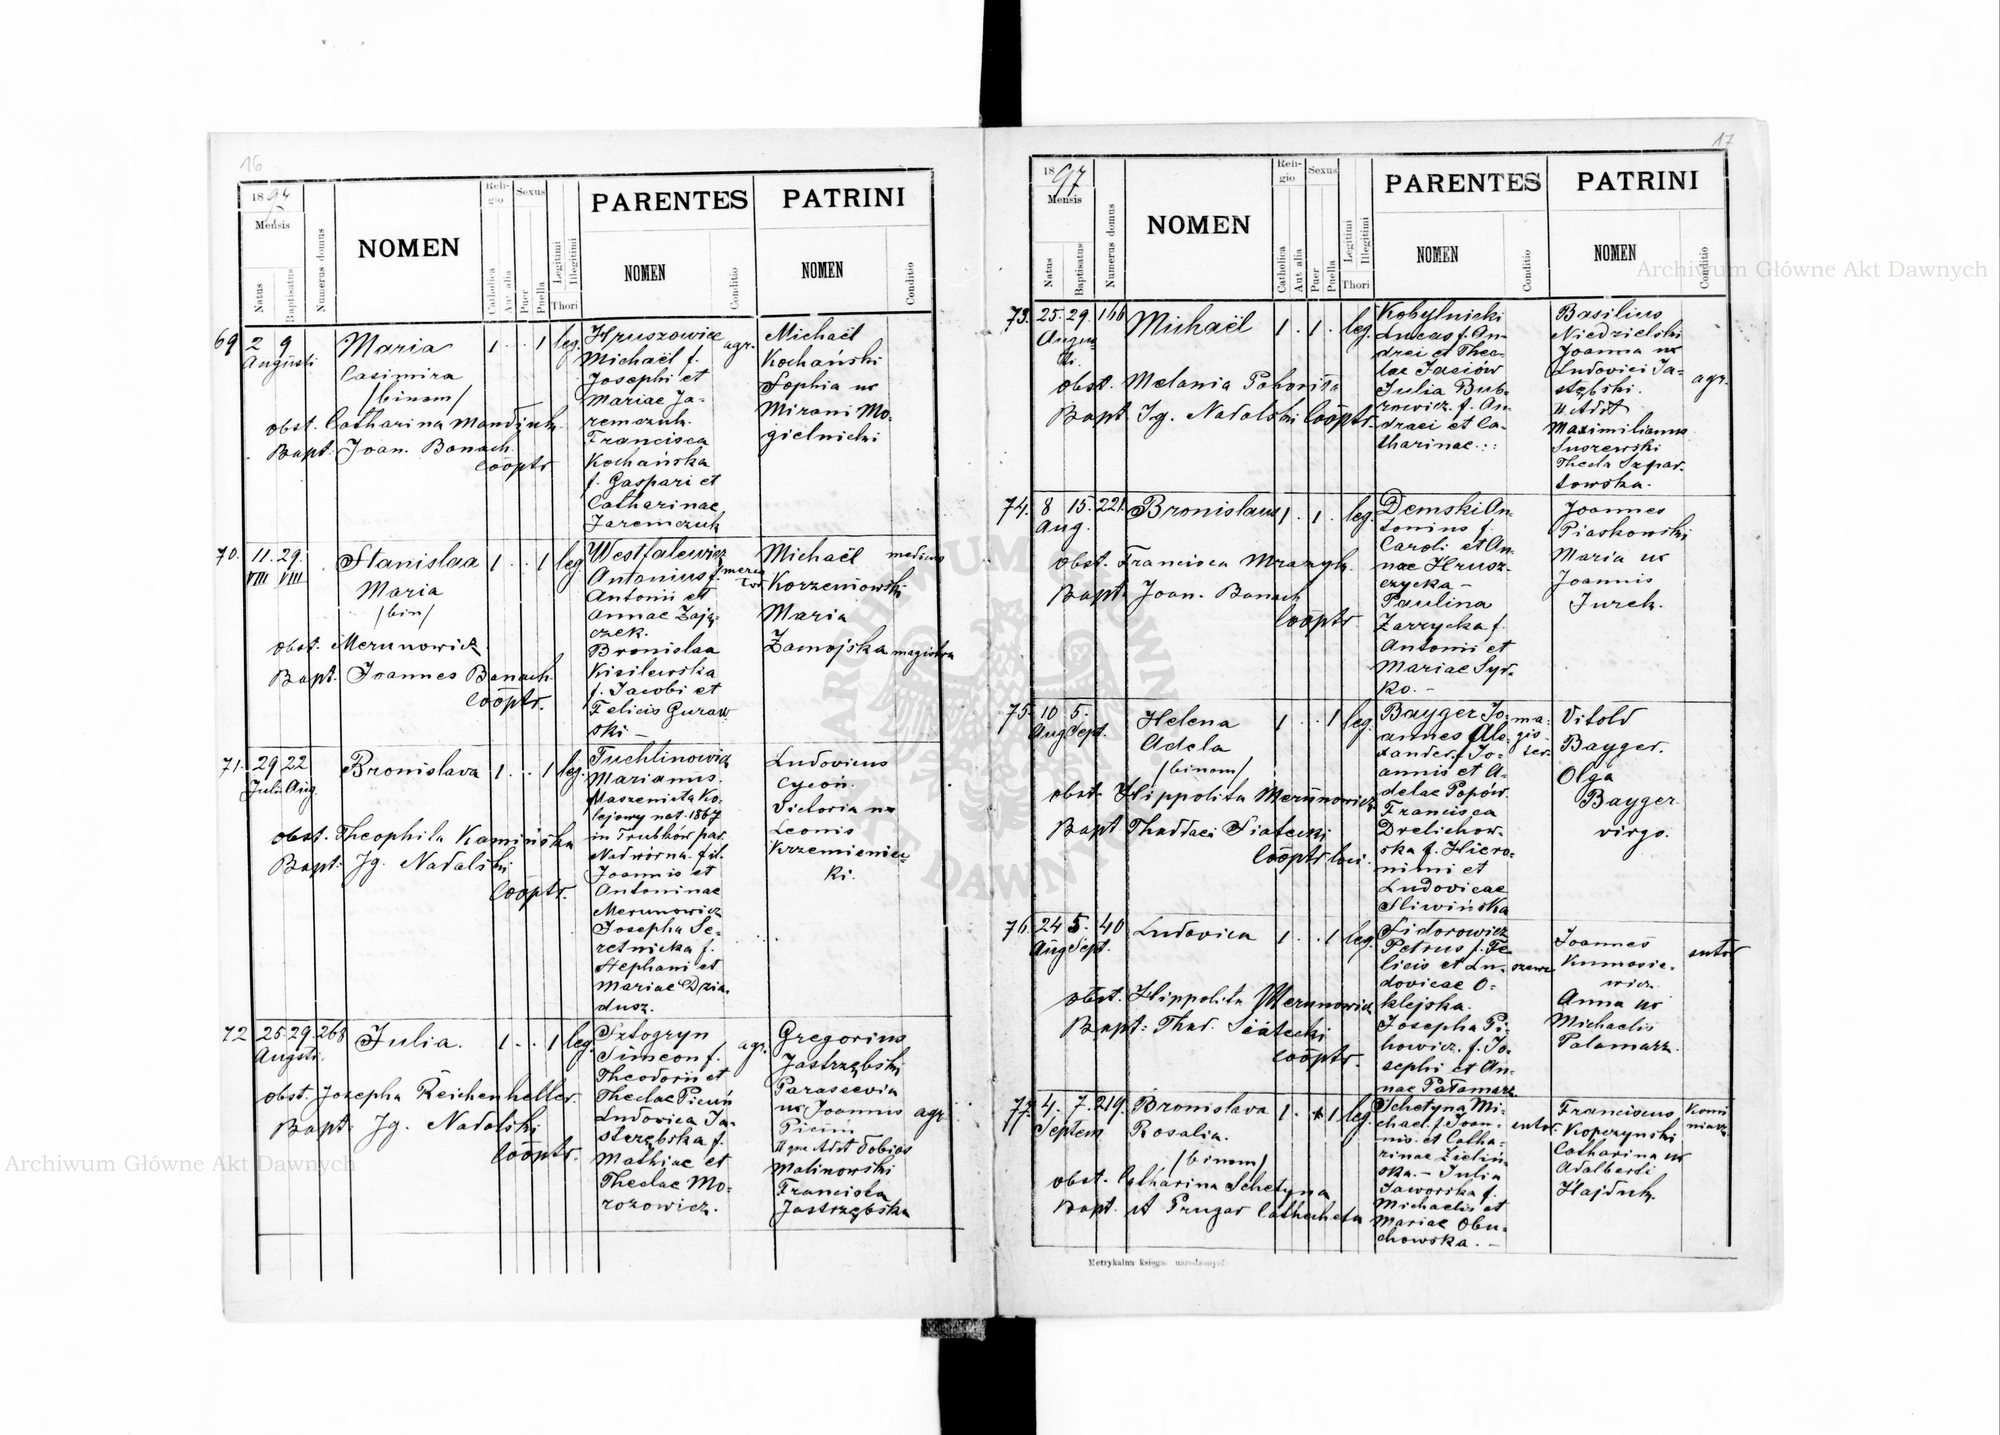 16
1897
Mensis
Natus
Baptisatus
Numerus domus
NOMEN
Religio
Catholica
Aut alia
Sexus
Puer
Puella
Legitimi
Illegitimi
Thori
PARENTES
NOMEN
Conditio
PATRINI
NOMEN
Conditio
69 2 9
Augusti
Maria
Casimira
/binom/
1 . . 1 leg.
obst. Catharina Mandziuk.
Bapt: Joan. Banach
Coōptr
Hruszowice
Michaël f.
Josephi et
Mariae Ja-
remczuk.
Francisca
Kochańska
f. Gaspari et
Catharinae
Jaremczuk
agr.
Michaël
Kochański
Sophia ux
Mirani Mo-
gielnicki
70. 11. 29.
VIII VIII
Stanislaa
Maria
/bin/
1 . . 1 leg
obst. Merunowicz
Bapt. Joannes Banach.
Coōptr.
Westfalewicz
Antonius f.
Antonii et
Annae Zają-
czek.
Bronislaa
Kisilewska
f. Jacobi et
Felicis Guraw
ski —
merca
tor
Michaël medicus
Korzeniowski
Maria
Zamojska magistra
71. 29 22
Julii Aug.
Bronislava 1 . . 1 leg.
obst. Theophila Kamińska
Bapt: Jg. Nadolski
Coōptr.
Tuchlinowicz
Marianus.
Maszenista Ko-
lejowy nat. 1867
in Trubków par.
Nadwórna. fil.
Joannis et
Antoninae
Merunowicz
Josepha Se-
retnicka f.
Stephani et
Mariae Dzia-
dusz.
Ludovicus
Cycoń.
Victoria ux
Leonis
Krzemienic-
ki.
72 25. 29. 268
Augsti
Julia. 1 . . 1 leg.
obst. Josepha Reichenheller.
Bapt: Jg. Nadolski
Coōptr.
Sztogryn
Simeon f.
Theodorii et
Theclae Picuń
Ludovica Ja-
strzębska f.
Mathiae et
Theclae Mo-
rozowicz.
agr.
Gregorius
Jastrzębski
Parascevia
ux Joannis agr.
Picuń
Adst Tobias
Malinowski
Francisca
Jastrzębska
17
1897
Mensis
Natus
Baptisatus
Numerus domus
NOMEN
Religio
Catholica
Aut alia
Sexus
Puer
Puella
Legitimi
Illegitimi
Thori
PARENTES
NOMEN
Conditio
PATRINI
NOMEN
Conditio
73. 25. 29. 166
Augu
sti.
Michaël 1 . 1 . leg.
obst. Melania Pohoriła
Bapt. Jg. Nadolski Coōptr.
Kobylnicki
Lucas f. An-
drei et Thec-
lae Jaciów
Julia Bub-
nowicz. f. An-
draei et Ca-
tharinae . : :
Basilius
Niedzielski
Joanna ux
Ludovici Ja-
stębski. agr.
Adst
Maximilianus
Suszewski
Thecla Szpar-
towska.
74. 8 15. 221.
Aug.
Bronislaus 1 . 1 . leg.
obst. Francisca Mrazyk.
Bapt. Joan. Banach
Coōptr
Demski An-
tonius f.
Caroli et An-
nae Hrusz-
czycka —
Paulina
Zarzycka f.
Antonii et
Mariae Syd-
ko. —
Joannes
Piaskowski
Maria ux
Joannis
Jurek.
75. 10 5.
Aug Sept.
Helena
Adela
/binom/
1 . . 1 leg.
obst. Hippolita Merunowicz
Bapt Thaddaei Siatecki
Coōptr loci.
Bayger Jo-
annes Ale-
xander f. Jo-
annis et A-
delae Popów.
Francisca
Drelichow-
ska f. Hiero-
nimi et
Ludovicae
Śliwińska
ma-
gis-
ter.
Vitold
Bayger.
Olga
Bayger
virgo.
76. 24 5. 40
Aug Sept.
Ludovica 1 . . 1 leg.
obst. Hippolita Merunowicz
Bapt: Thad. Siatecki
Coōptr.
Sidorowicz
Petrus f. Fe-
licis et Lu-
dovicae O-
klejska.
Josepha Pi-
howicz. f. Jo-
sephi et An-
nae Pałamarz
Joannes
Kumosie-
wicz
Anna ux
Michaelis
Palamarz.
sutor
77. 4. 7. 219.
Septem
Bronislava
Rosalia.
/binom/
1 . 1 leg.
obst. Catharina Schetyna
Bapt. A Prugar Catecheta
Schetyna Mi-
chael. f. Joan-
nis. et Catha-
rinae Zieliń-
ska. — Julia
Jaworska f.
Michaelis et
Mariae Obu-
chowska. —
sutor.
Franciscus
Kopczynski
Catharina ux
Adalberti
Hajduk.
Komi
niarz
Metrykalna księga: narodzonych
Archiwum Główne Akt Dawnych
Archiwum Główne Akt Dawnych
ARCHIWUM GŁÓWNE AKT DAWNYCH